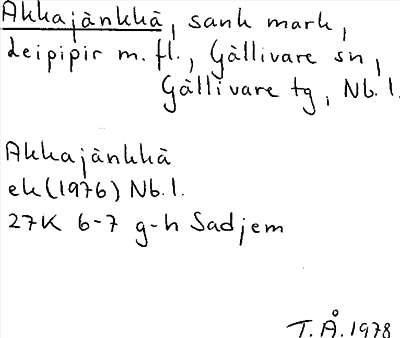 Akkajànkkà, sank mark,
Leipipir m. fl., Gàllivare sn,
Gàllivare tg, Nb. l.
Akkajànkkà
ek (1976) Nb. l.
27K 6-7 g-h Sadjem
T. Å. 1978